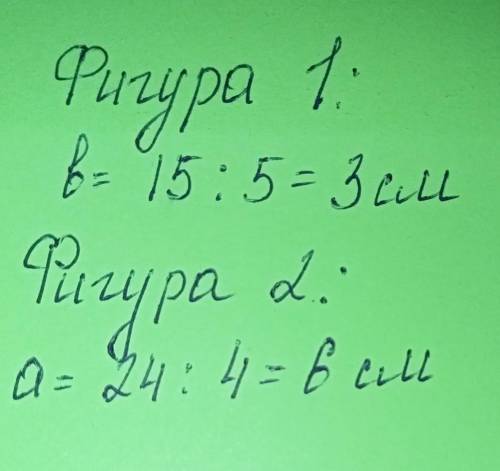 Фигура 1:
в= 15:5=3см
Фигура 2:
а= 24:4=6 см